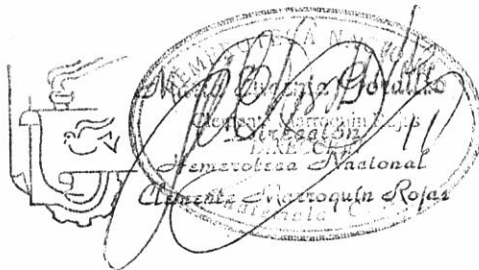 HEMEROTECA NACIONAL
María Eugenia Gordillo
Clemente Marroquín Rojas
Dirección
Hemeroteca Nacional
Clemente Marroquín Rojas